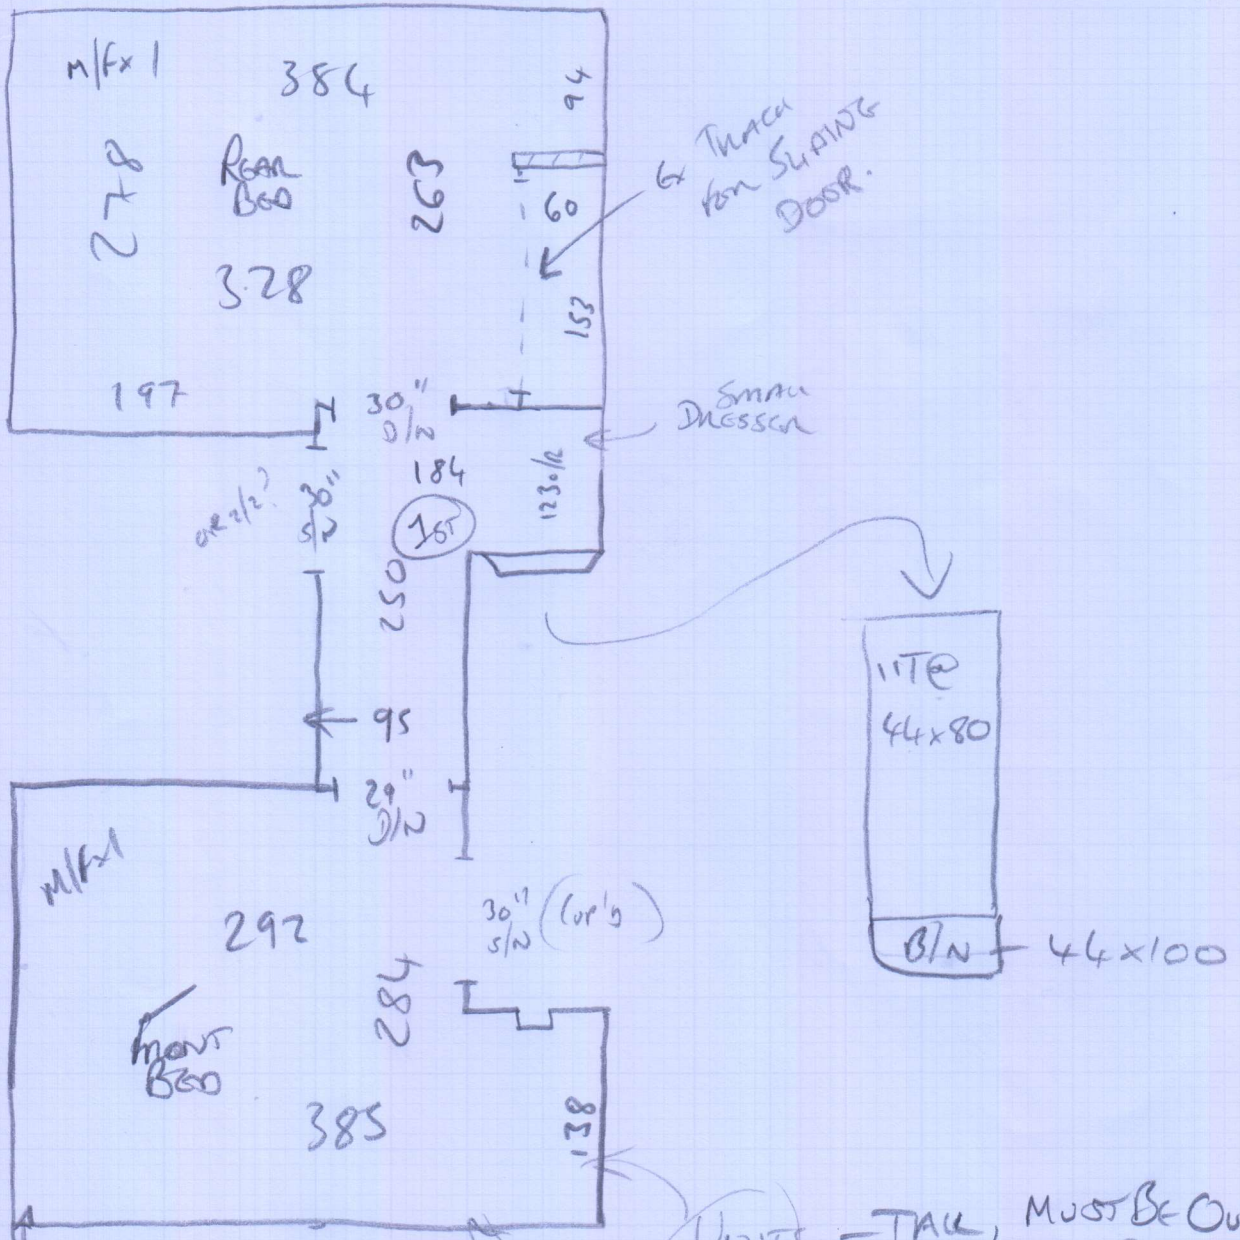 M/Fx 1
384
94
278
REAR
BED
263
60
Ex TRACK
FOR SLIDING
DOOR.
328
153
197
30"
D/N
SMALL
DRESSER
184
30"
S/N
1230/R
1ST
250
11T@
44x80
95
29"
D/N
M/Fx1
292
30"
S/N
B/N
44x100
284
FRONT
BED
385
138
- TALL, MUST BE